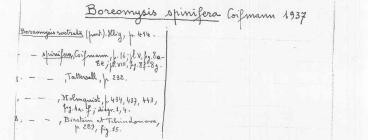 Boreomysis spinifera Coifmann 1937
Boreomysis rostrata (part). Illig, p. 414.
- - spinifera, Coifmann, p. 16; pl. V, fig. 8a-
8e; pl. VIII, fig. 8f-8g.
- - , Tattersall, p. 232.
- - , Holmquist, p. 434, 437, 443,
fig. 1a-f; diagr. 1, 4.
- - , Birstein et Tchindonova,
p. 289, fig. 15.